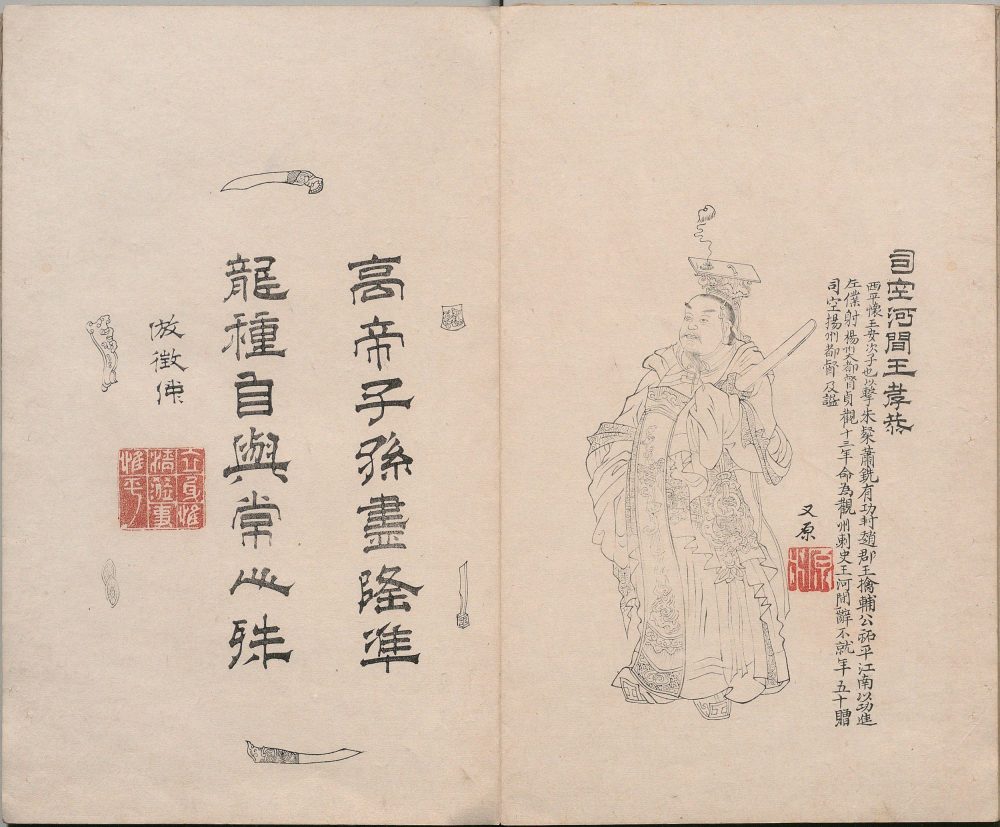 司空河間王孝恭
西平懷王安次子也以擊朱粲蕭銑有功封趙郡王擒輔公祏平江南以功進
左僕射楊州大都督貞觀十三年命為觀州刺史王河間辭不就年五十贈
司空揚州都督及謚
又原
高帝子孫盡隆準
龍種自與常人殊
倣徵仲
立身惟
清涖事
惟平